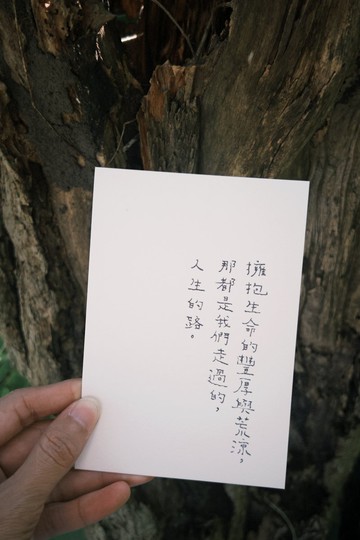 擁抱生命的豐厚與荒涼，
那都是我們走過的，
人生的路。